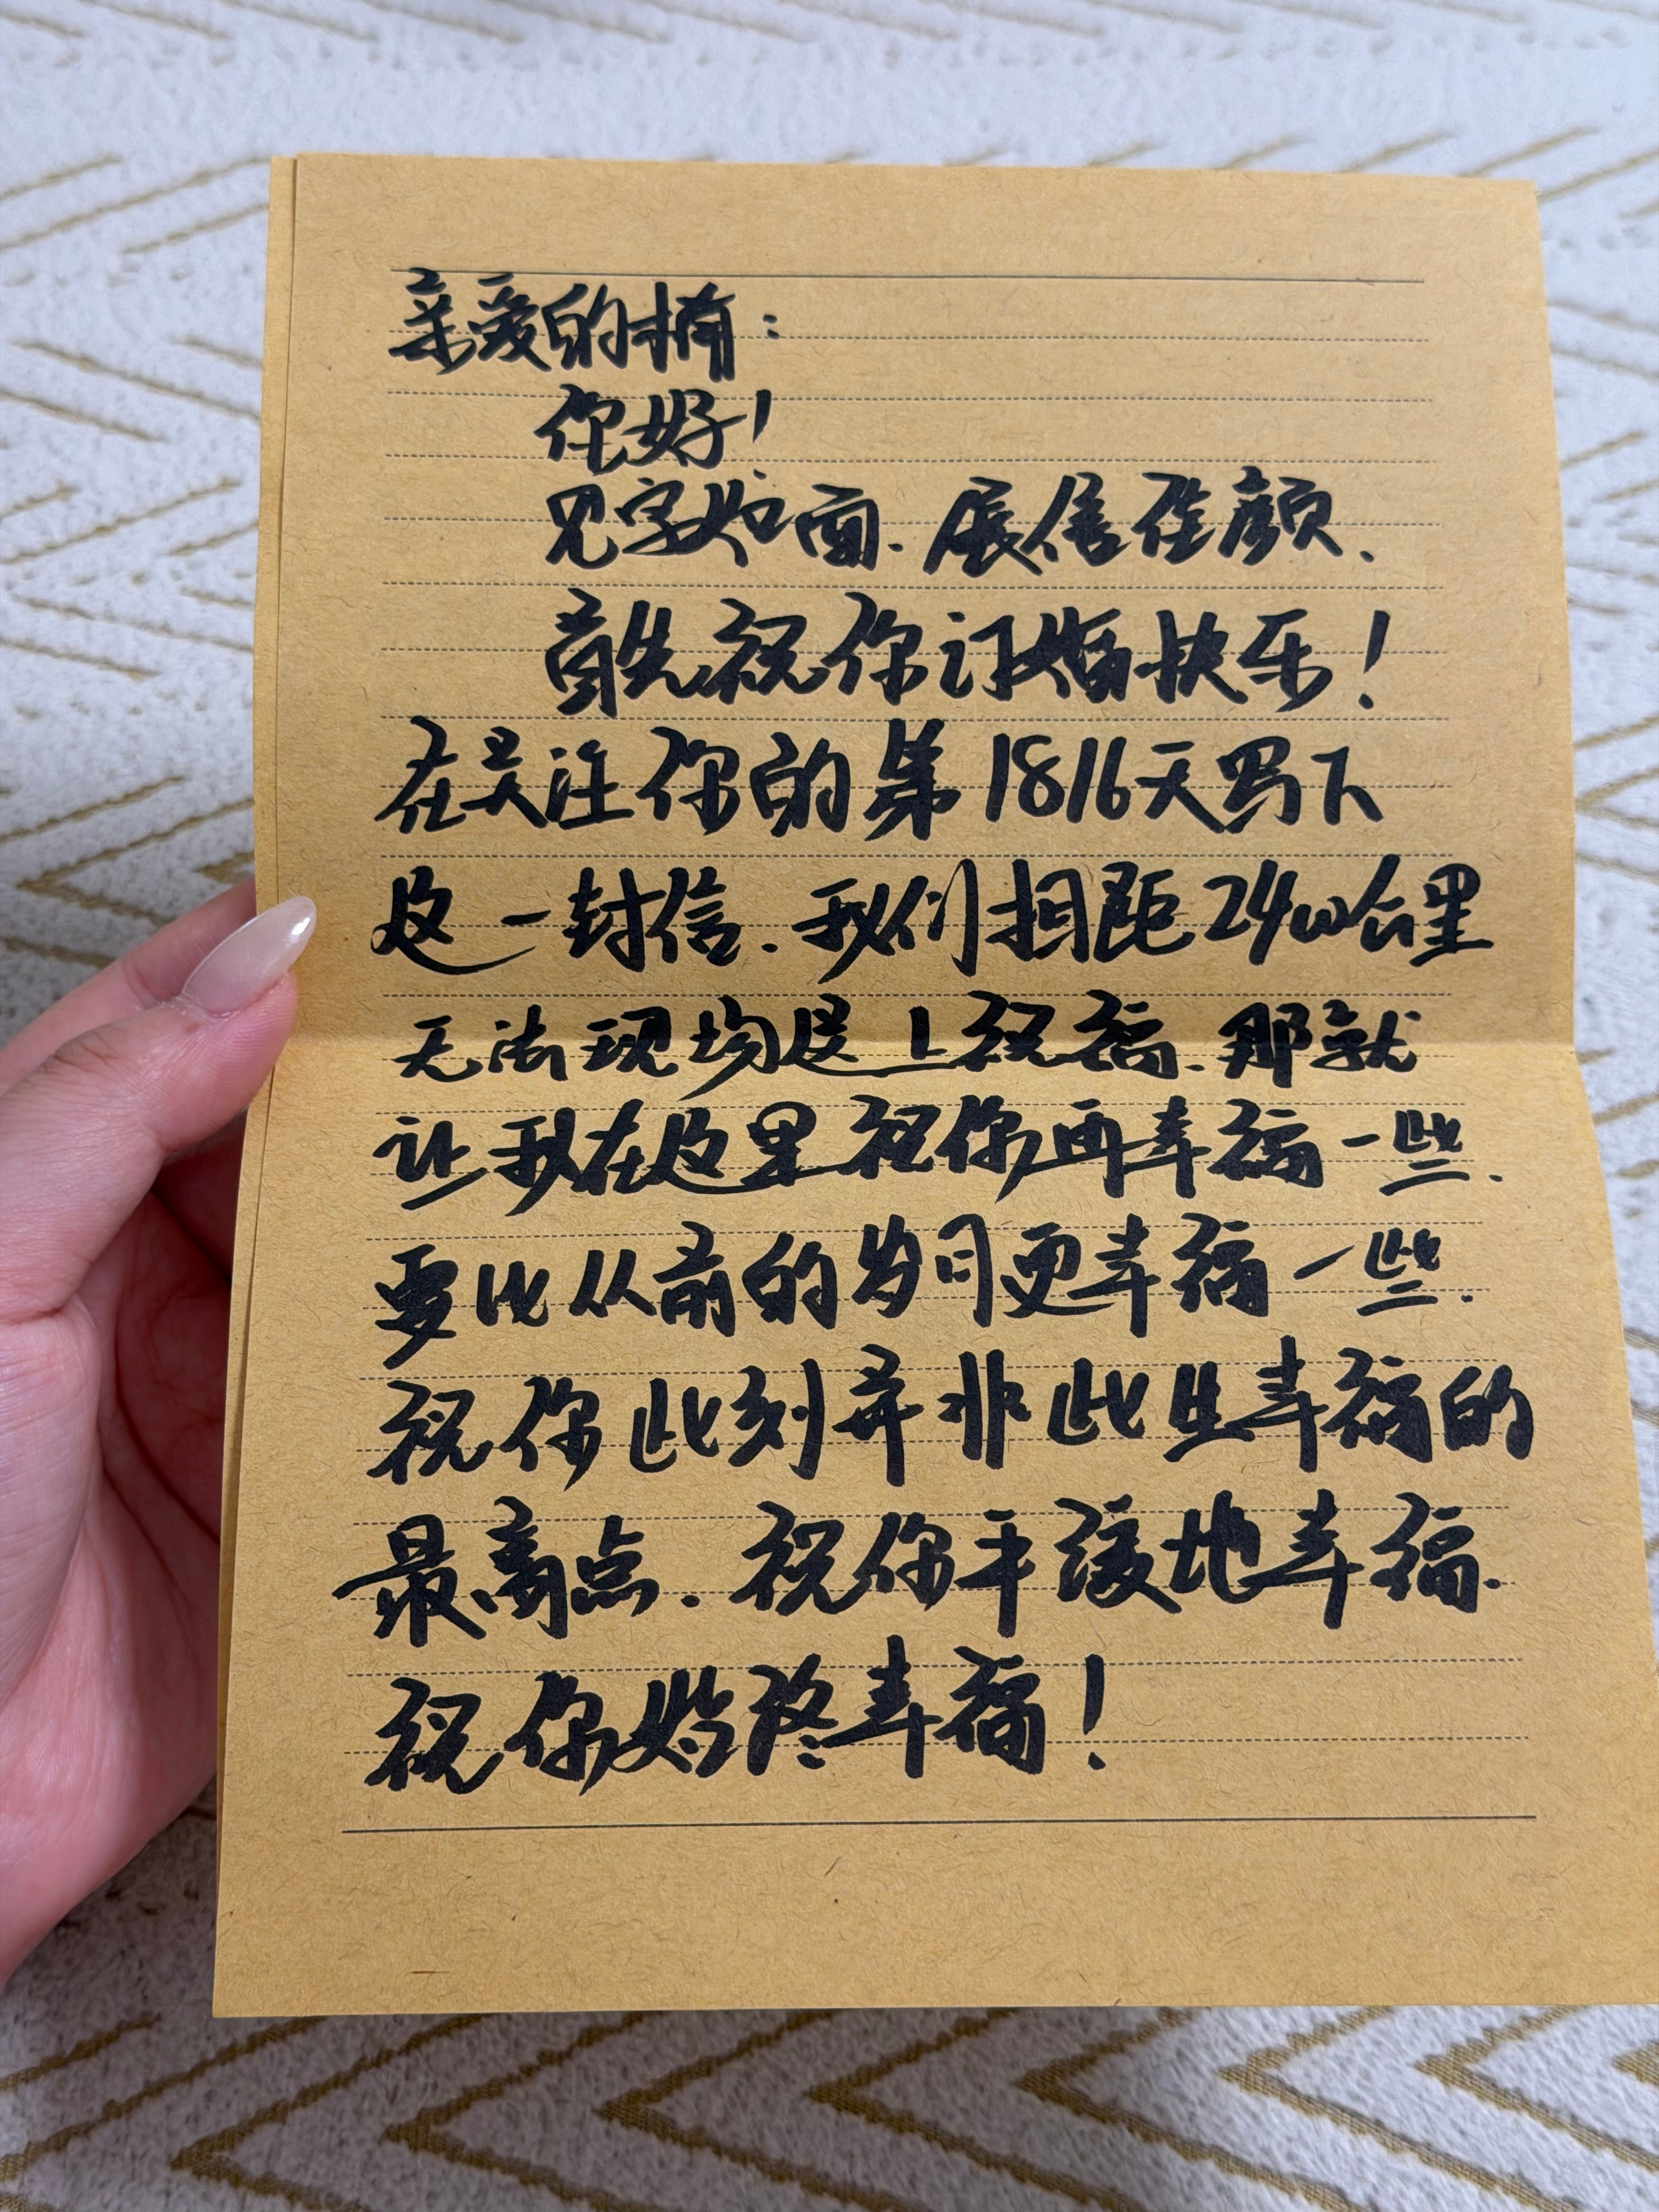 亲爱的楠：
你好！
见字如面.展信佳颜.
首先祝你订婚快乐！
在关注你的第1816天写下
这一封信.我们相距2400公里
无法现场送上祝福.那就
让我在这里祝你再幸福一些.
要比从前的岁月更幸福一些.
祝你此刻并非此生幸福的
最高点.祝你平缓地幸福.
祝你始终幸福！